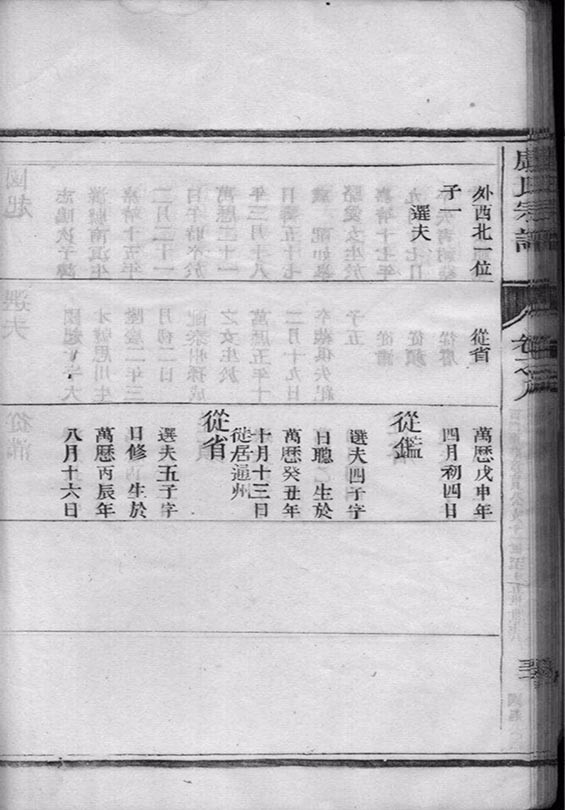 盧氏宗譜
外西北一位
子一
選夫
從省
萬歷戊申年
四月初四日
從鑑
選夫四子字
日聰生於
萬歷癸丑年
十月十三日
徙居通州
從省
選夫五子字
日修生於
萬歷丙辰年
八月十六日